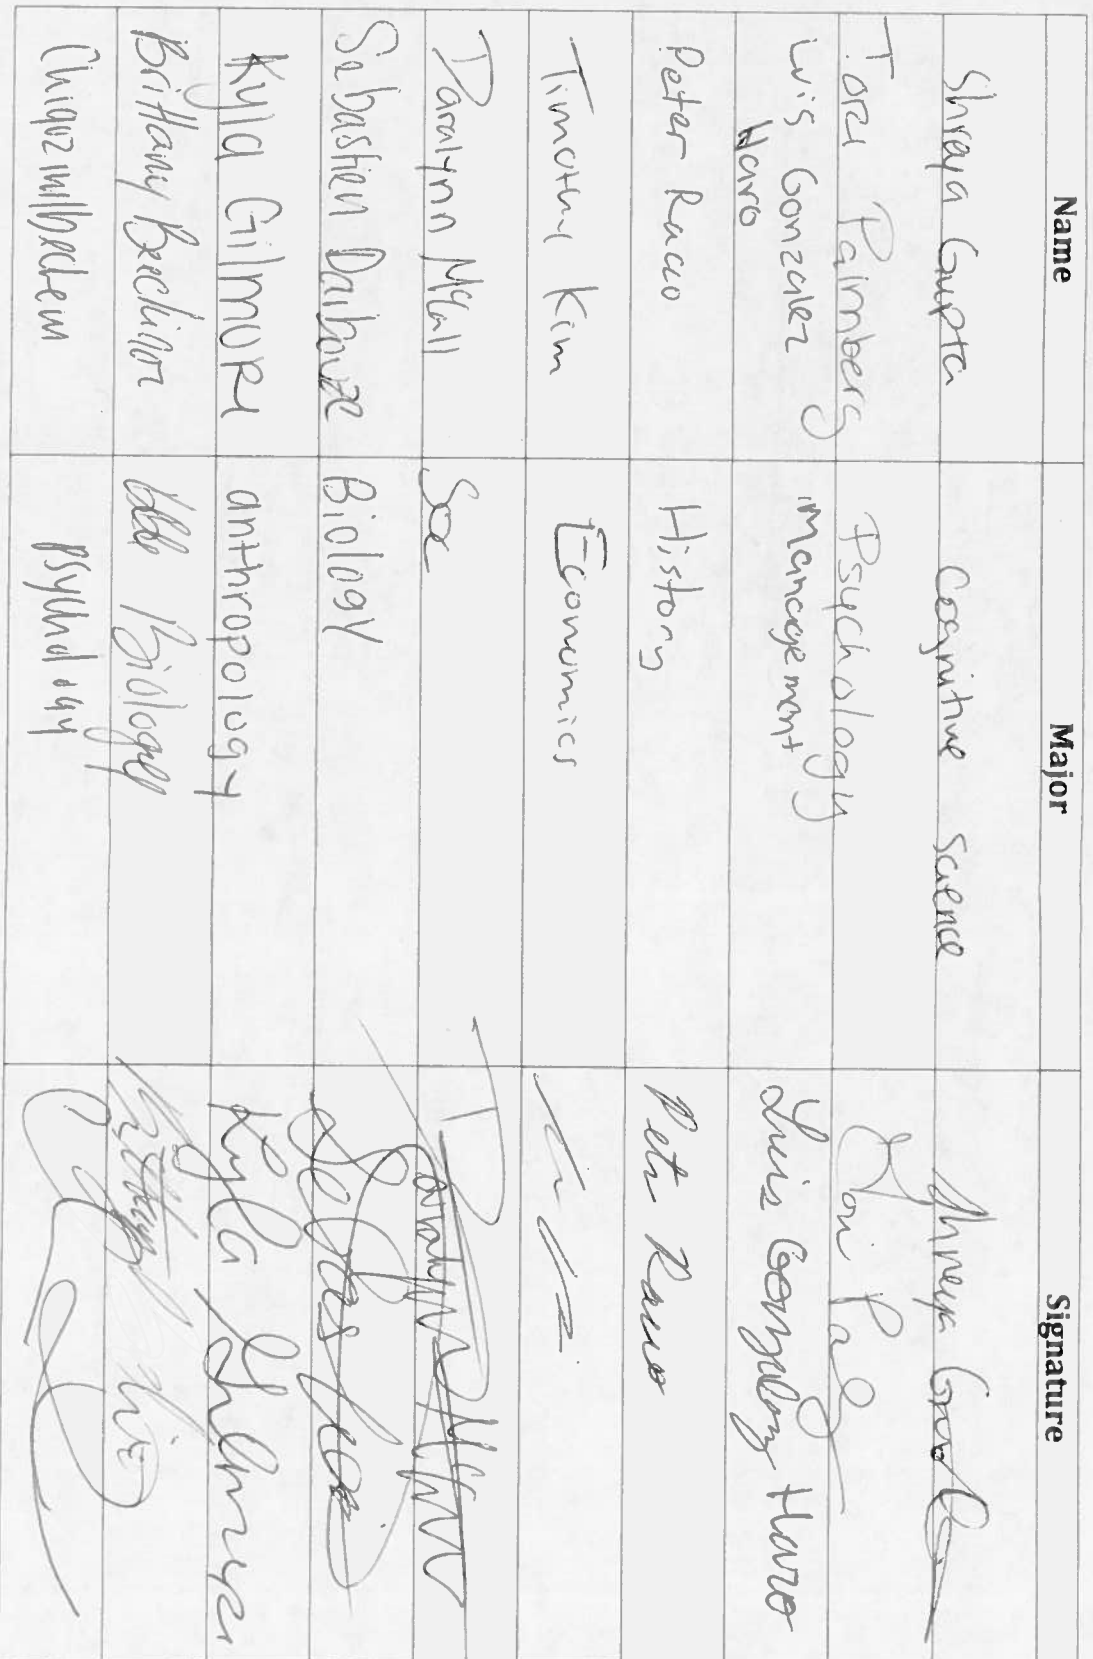 Name Major Signature
Shreya Gupta Cognitive Science Shreya Gupta
Tori Palmberg Psychology Tori
Luis Gonzalez Haro Management Luis Gonzalez Haro
Peter Racco History Peter Racco
Timothy Kim Economics
Daralynn McCall Soc Daralynn
Sebastien Biology
Kyla Gilmore anthropology Kyla Gilmore
Brittany Biology
psychology